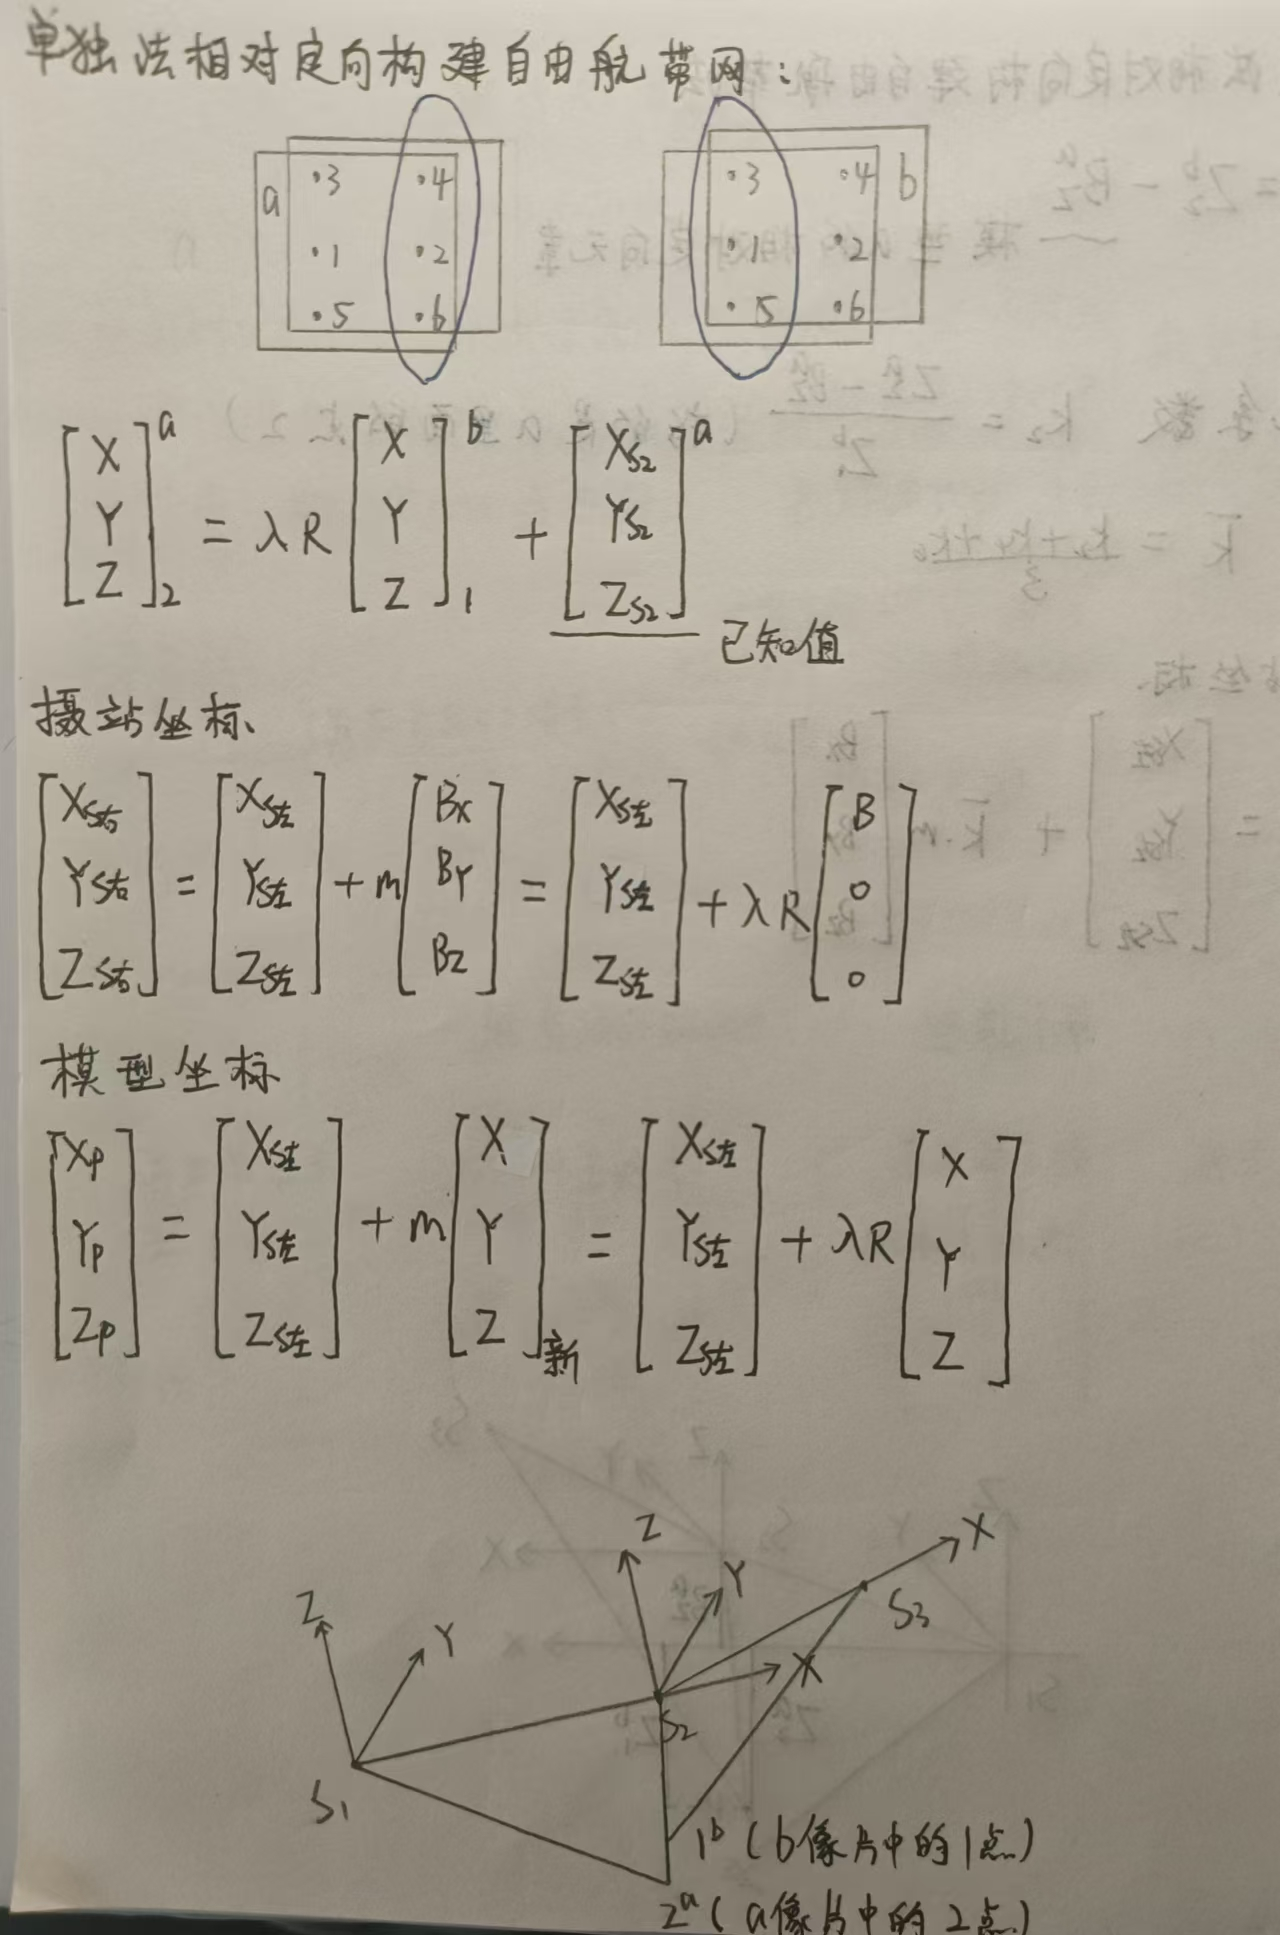 单独法相对定向构建自由航带网：
a ·3 ·4 ·3 ·4 b
·1 ·2 ·1 ·2
·5 ·6 ·5 ·6
[X Y Z]₂ᵃ = λR [X Y Z]₁ᵇ + [X_S2 Y_S2 Z_S2]ᵃ
已知值
摄站坐标
[X_S右 Y_S右 Z_S右] = [X_S左 Y_S左 Z_S左] + m [Bx BY BZ] = [X_S左 Y_S左 Z_S左] + λR [B 0 0]
模型坐标
[Xp Yp Zp] = [X_S左 Y_S左 Z_S左] + m [X Y Z]新 = [X_S左 Y_S左 Z_S左] + λR [X Y Z]
Z Y X
Z Y S3
X
S2
S1
1ᵇ (b像片中的1点)
2ᵃ (a像片中的2点)